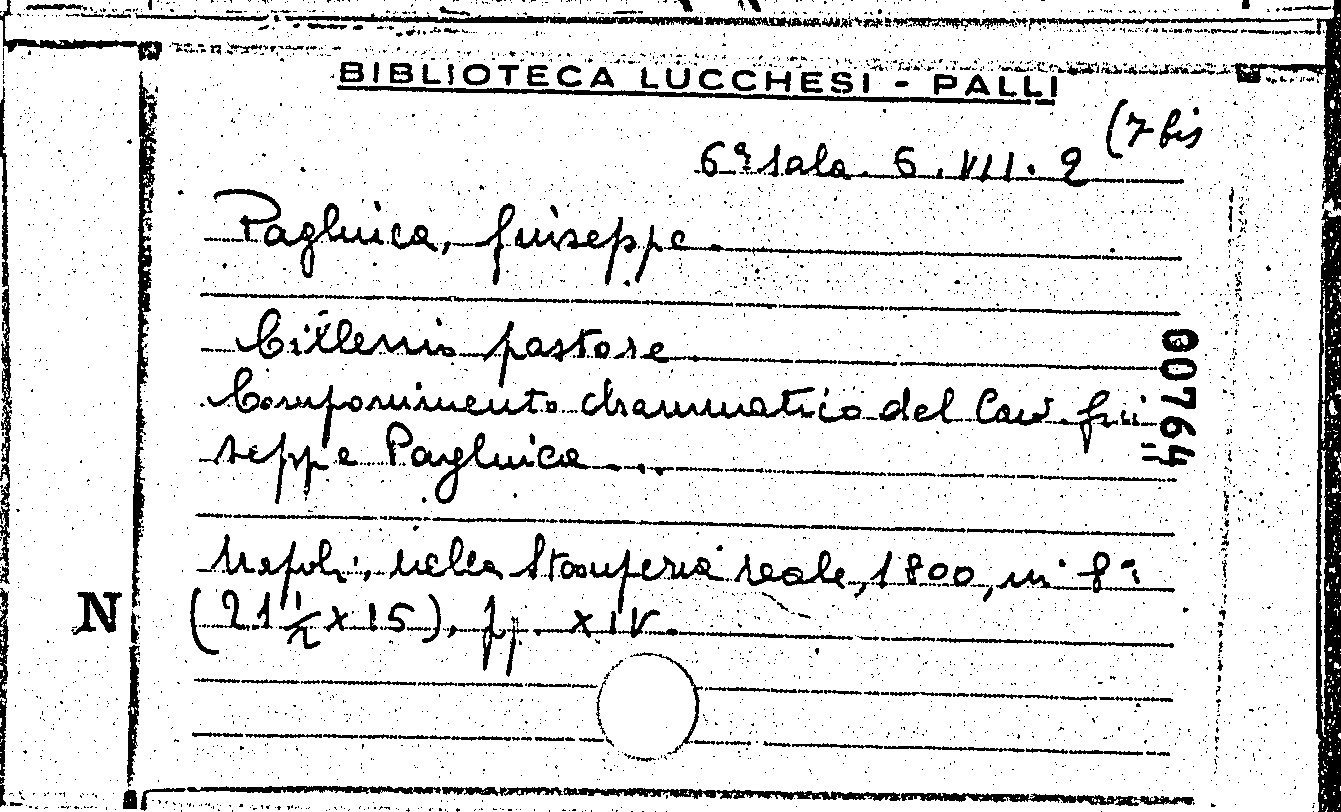 BIBLIOTECA LUCCHESI - PALLI
6ª sala. 6. VII. 2 (7 bis
Pagluica, Giuseppe.
Cillenio pastore
Componimento drammatico del Cav. Giu=
seppe Pagluica ...
Napoli, nella Stamperia reale, 1800, in 8º
(21 1/2 x 15), pp. XIV.
00764
N